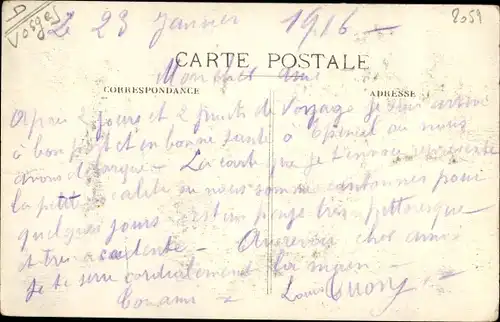 Vosges
8059
Le 23 Janvier 1916 -
CARTE POSTALE
Mon cher ami
CORRESPONDANCE
ADRESSE
après 2 jours et 2 nuits de voyage je suis arrivé
à bon port et en bonne santé a Epinal ou nous
avons débarqué - La carte que je t'envoie represente
la petite localité ou nous sommes cantonnés pour
quelques jours c'est un pays très pittoresque
et très - Aurevoir cher ami
Je te serre cordialement la main -
Ton ami - Louis